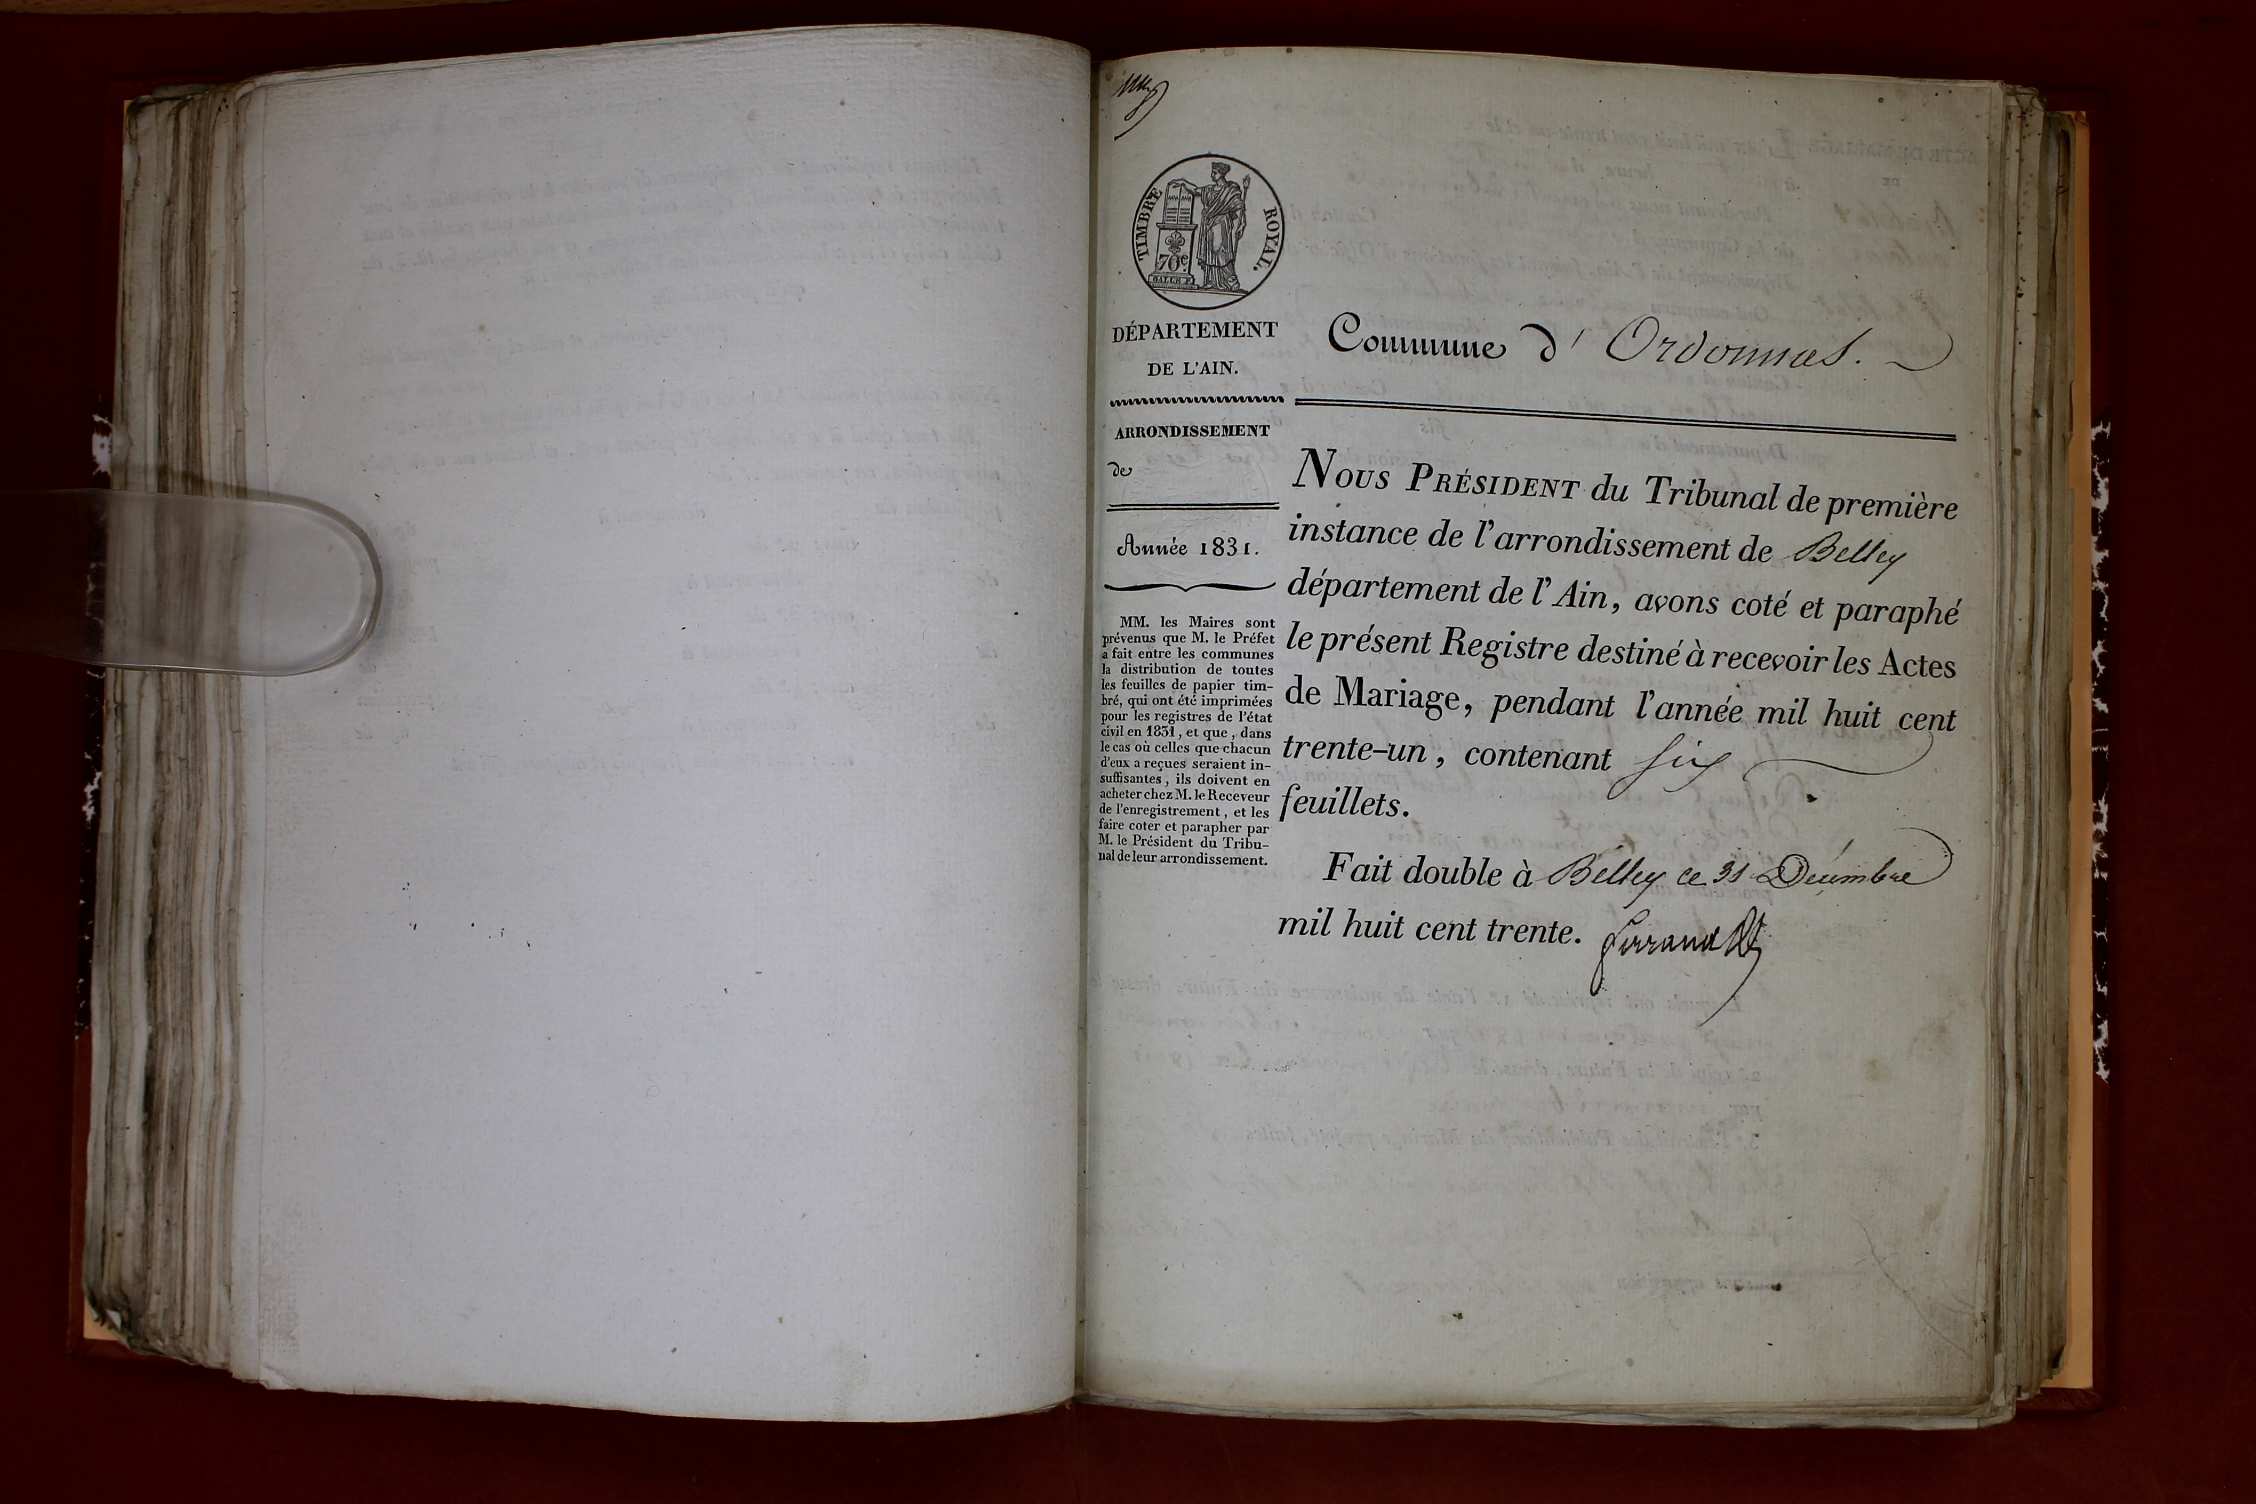 TIMBRE ROYAL.
70c.
DÉPARTEMENT
DE L'AIN.
ARRONDISSEMENT
de
Année 1831.
MM. les Maires sont
prévenus que M. le Préfet
a fait entre les communes
la distribution de toutes
les feuilles de papier tim-
bré, qui ont été imprimées
pour les registres de l'état
civil en 1831, et que, dans
le cas où celles que chacun
d'eux a reçues seraient in-
suffisantes, ils doivent en
acheter chez M. le Receveur
de l'enregistrement, et les
faire coter et parapher par
M. le Président du Tribu-
nal de leur arrondissement.
Commune d' Ordonnas.
NOUS PRÉSIDENT du Tribunal de première
instance de l'arrondissement de Belley
département de l'Ain, avons coté et paraphé
le présent Registre destiné à recevoir les Actes
de Mariage, pendant l'année mil huit cent
trente-un, contenant six
feuillets.
Fait double à Belley ce 31 Décembre
mil huit cent trente.